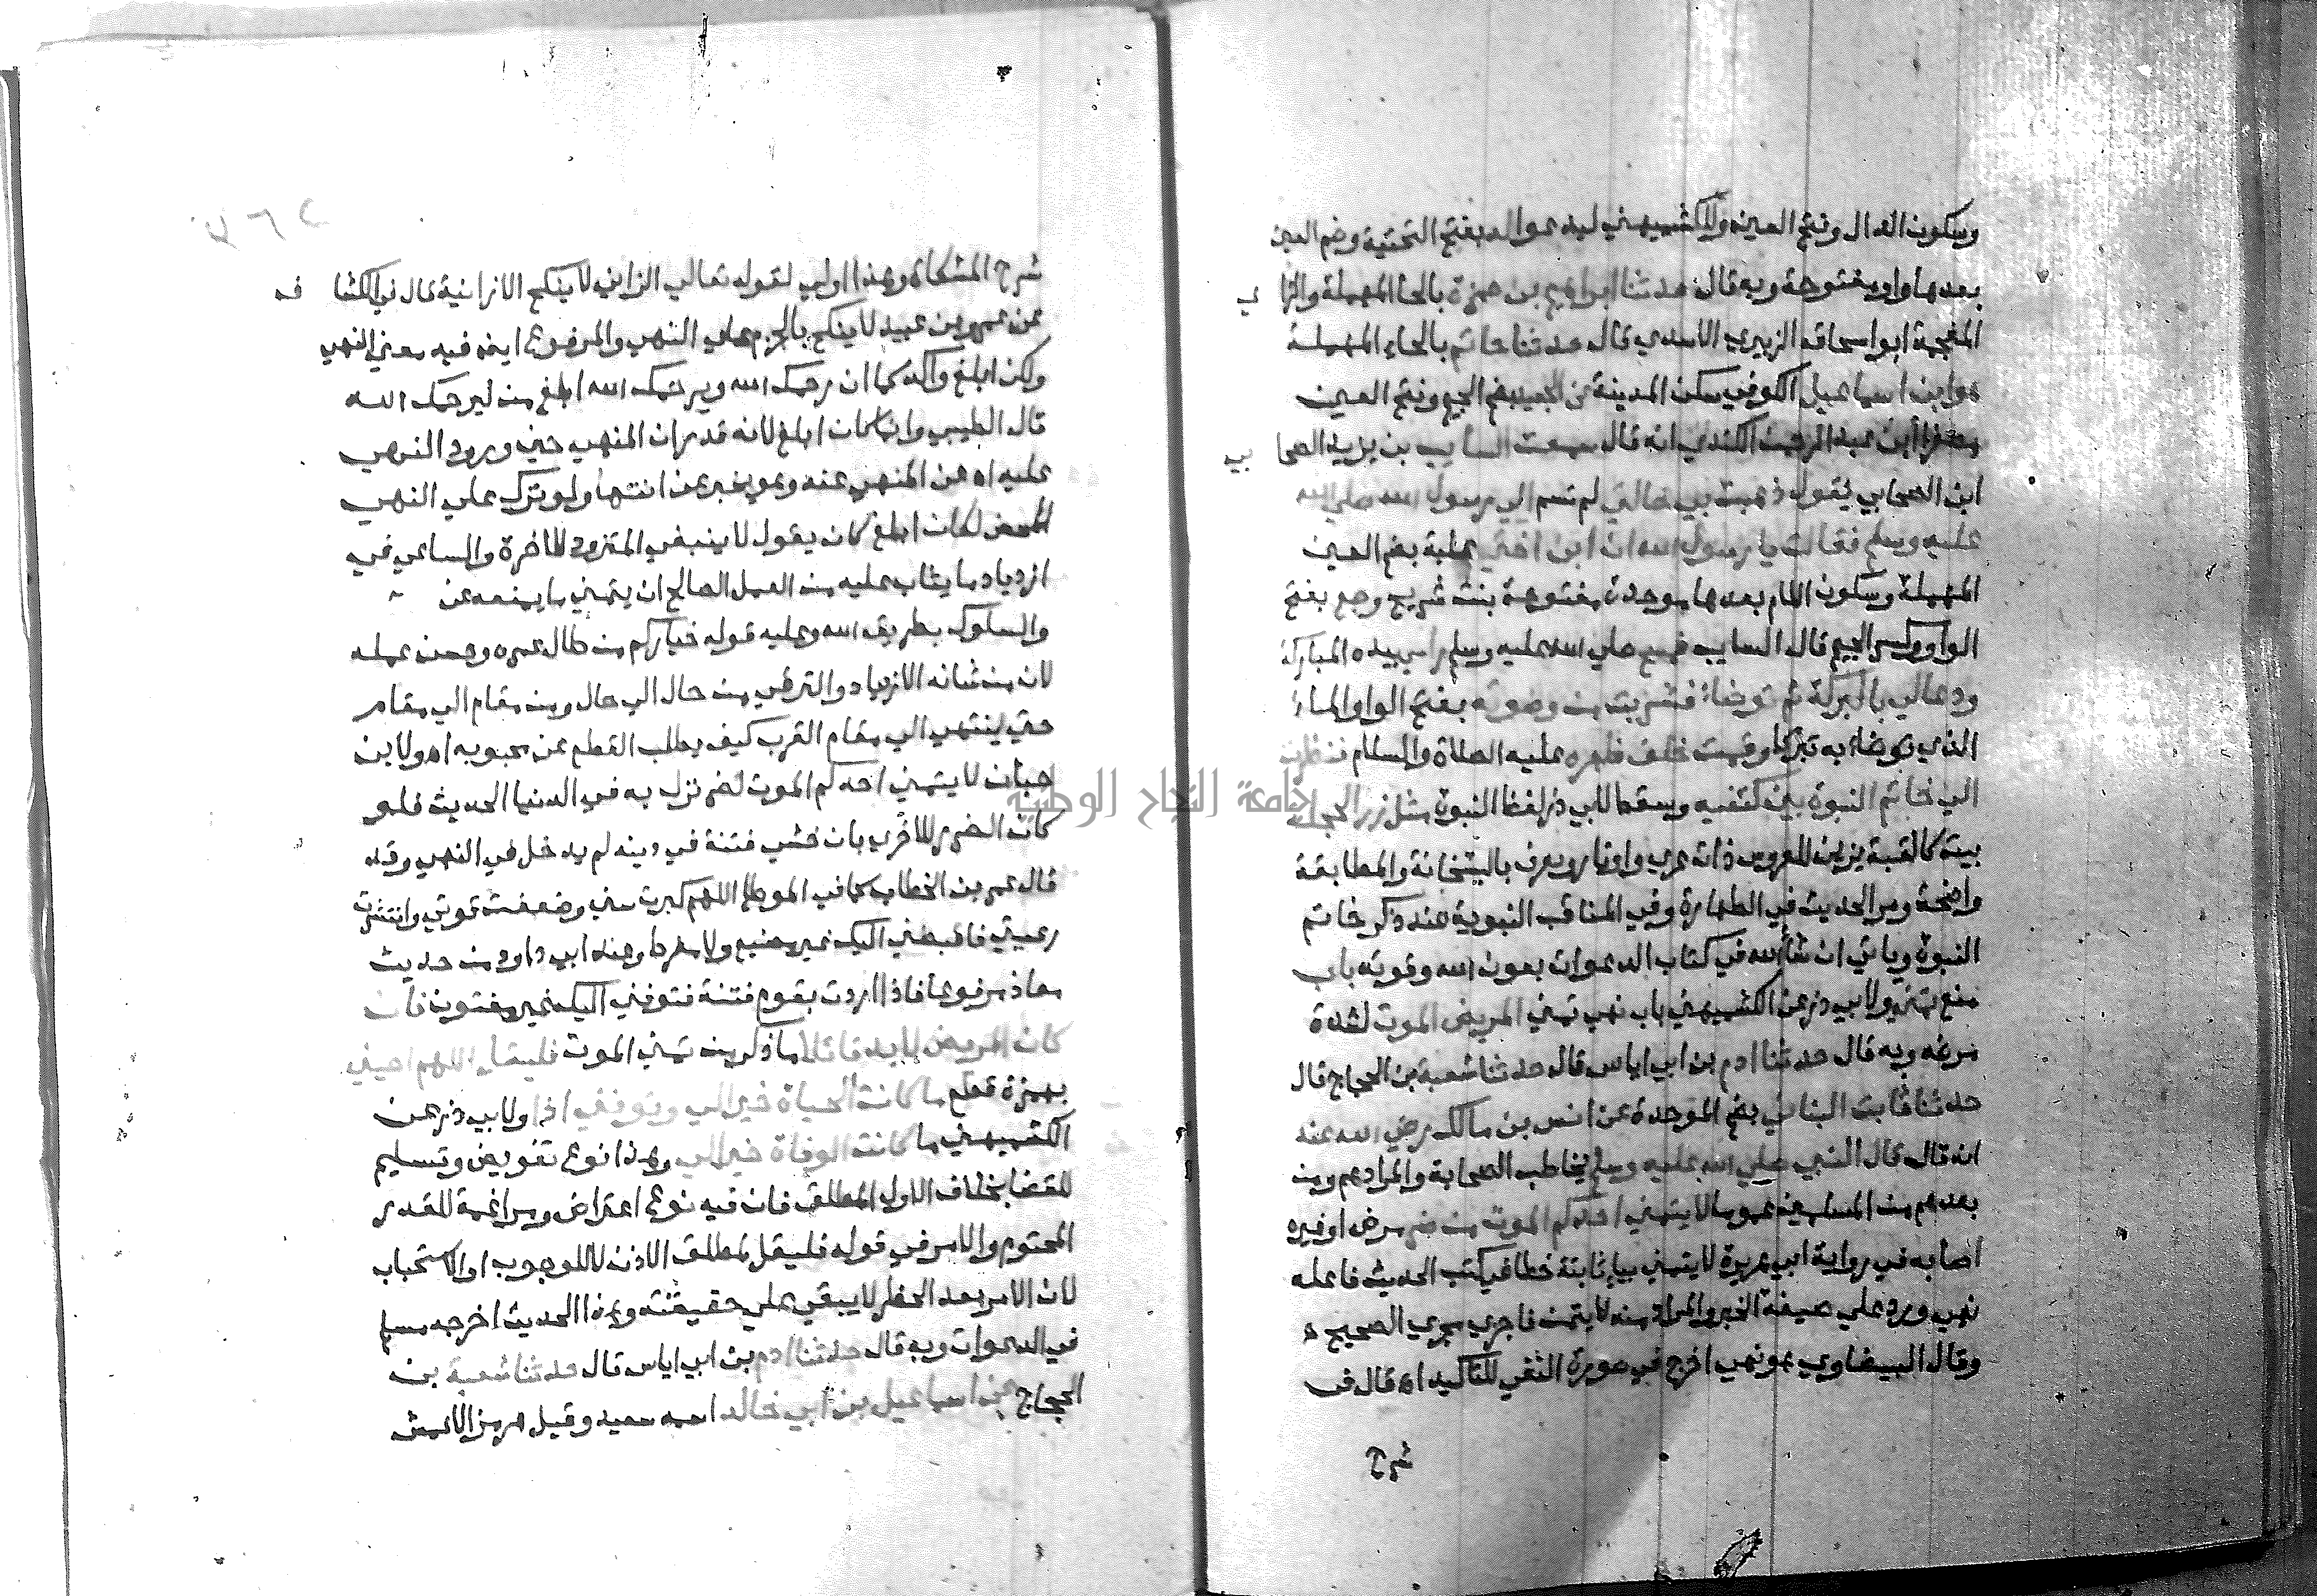 وسكون الدال وفتح العين وللكشميهني ليدعو الله بفتح التحتية وضم العين
بعدها واو مفتوحة وبه قال حدثنا ابراهيم بن حمزة بالحا المهملة والزاي
المعجمة ابو اسحاق الزبيري الاسدي قال حدثنا حاتم بالحاء المهملة
هو ابن اسماعيل الكوفي سكن المدينة عن الجعيد بضم الجيم وفتح العين
مصغرا ابن عبد الرحمن الكندي انه قال سمعت السايب بن يزيد الصحابي
ابن الصحابي يقول ذهبت بي خالتي لم تسم الي رسول الله صلي الله
عليه وسلم فقالت يا رسول الله ان ابن اختي علبة بضم العين
المهملة وسكون اللام بعدها موحدة مفتوحة بنت شريح وجع بفتح
الواو وكسر الجيم قال السايب فمسح صلي الله عليه وسلم راسي بيده المباركة
ودعا لي بالبركة ثم توضاء فشربت من وضوئه بفتح الواو الماء
الذي توضاء به تبركا وقمت خلف ظهره عليه الصلاة والسلام فنظرت
الي خاتم النبوة بين كتفيه وسقط لابي ذر لفظ النبوة مثل زر الحجلة
بيت كالقبة يزين للعروس ذات عري وازرار ويعرف بالبشخانة والمطابقة
واضحة ومر الحديث في الطهارة وفي المناقب النبوية عند ذكر خاتم
النبوة وياتي ان شاء الله في كتاب الدعوات بعون الله وقوته باب
منع تمني ولابي ذر عن الكشميهني باب نهي تمني المريض الموت لشدة
مرضه وبه قال حدثنا ادم بن ابي اياس قال حدثنا شعبة بن الحجاج قال
حدثنا ثابت البناني بضم الموحدة عن انس بن مالك رضي الله عنه
انه قال قال النبي صلي الله عليه وسلم يخاطب الصحابة والمراد هم ومن
بعدهم من المسلمين عموما لا يتمني احدكم الموت من ضر مرض او غيره
اصابه في رواية ابي هريرة لا يتمني بياء ثابتة خطا في كتب الحديث فلعله
نهي ورد علي صيغة الخبر والمراد منه لا يتمن فاجري مجري الصحيح
وقال البيضاوي هو نهي اخرج في صورة النفي للتاكيد اه قال في
شرح
شرح المشكاة وهذا اولي لقوله تعالي الزاني لا ينكح الا زانية قال في الكشاف
عن عمرو بن عبيد لا ينكح بالجزم علي النهي والمرفوع ايضا فيه معني النهي
ولكن ابلغ واكد كما ان رحمك الله ويرحمك الله ابلغ من ليرحمك الله
قال الطيبي وانما كان ابلغ لانه قدر ان المنهي حين ورود النهي
عليه اه عن المنهي عنه وهو يخبر عن انتهاء ولو ترك علي النهي
المحض لكان ابلغ كان يقول لا ينبغي المتزود للاخرة والساعي في
ازدياد ما يثاب عليه من العمل الصالح ان يتمني ما يمنعه عن
والسلوك بطريق الله وعليه قوله خياركم من طال عمره وحسن عمله
لان من شانه الازدياد والترقي من حال الي حال ومن مقام الي مقام
حتي ينتهي الي مقام القرب كيف يطلب القطع عن محبوبه اه ولابن
حبان لا يتمني احدكم الموت لضر نزل به في الدنيا الحديث فلو
كان الضرر للاخري بان خشي فتنة في دينه لم يدخل في النهي وقد
قال عمر بن الخطاب كما في الموطا اللهم كبرت سني وضعفت قوتي وانتشرت
رعيتي فاقبضني اليك غير مضيع ولا مفرط وعند ابي داود من حديث
معاذ مرفوعا فاذا اردت بقوم فتنة فتوفني اليك غير مفتون فان
كان المريض لا بد فاعلا ما ذكر من تمني الموت فليقل اللهم احيني
بهمزة قطع ما كانت الحياة خيرا لي وتوفني اذا ولابي ذر عن
الكشميهني ما كانت الوفاة خيرا لي وهذا نوع تفويض وتسليم
للقضا بخلاف الاول المطلق فان فيه نوع اعتراض ومراغمة للقدر
المحتوم والامر في قوله فليقل لمطلق الاذن لا للوجوب او الاستحباب
لان الامر بعد الحظر لا يبقي علي حقيقته وهذا الحديث اخرجه مسلم
في الدعوات وبه قال حدثنا ادم بن ابي اياس قال حدثنا شعبة بن
الحجاج عن اسماعيل بن ابي خالد اسمه سعيد وقيل هرمز الاعمش
جامعة النجاح الوطنية